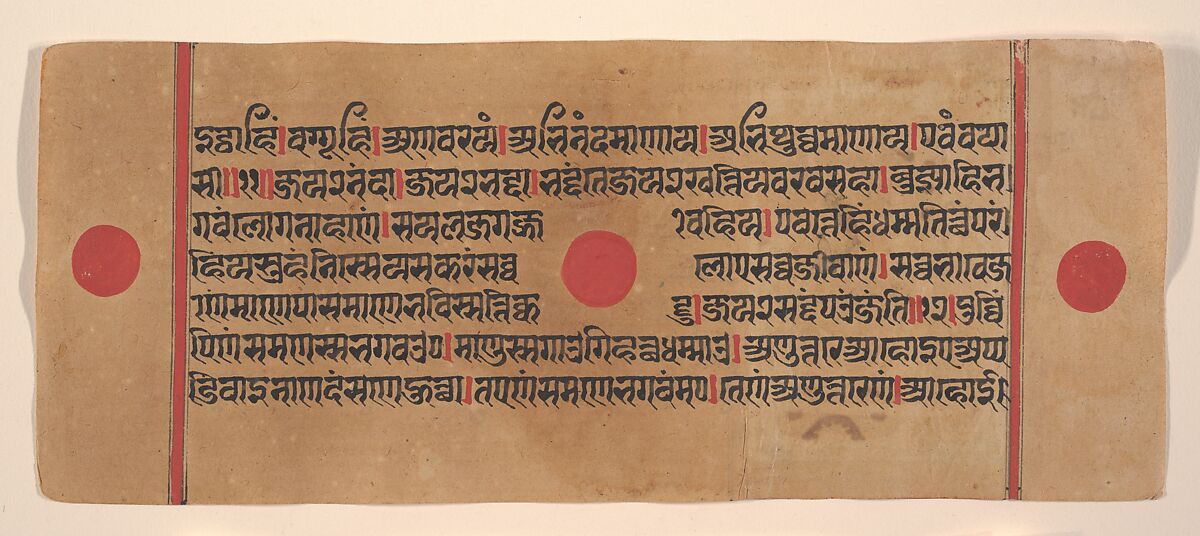 इट्ठाहिं।वग्गूहिं।अणवरयं।अभिनंदमाणाय।अभिथुव्वमाणाय।एवंवया
सी॥११॥जय२नंदा।जय२भद्दा।भद्दंतेजय२खत्तियवरवसहा।बुज्झाहिभ
गवंलोगनाहाणं।सयलजगज्जीवहियं।पवत्तेहिंधम्मतित्थंपरं।
हियसुहंनिस्सेयसकरंसव्वलोएसव्वजीवाणं।सव्वभावेज
णेणंमाणेणपासमाणेभविस्सत्तिकट्टु।जय२सद्दंपउंजेति॥१२।पुव्विं
पिणंसमणस्सभगवओ।माणुस्सगाओगिहत्थधम्माओ।अणुत्तरेआहोइएअप्प
डिवाइनाणदंसणेहुत्था।तएणंसमणेभगवंमए।तेणंअणुत्तरेणं।आहोई